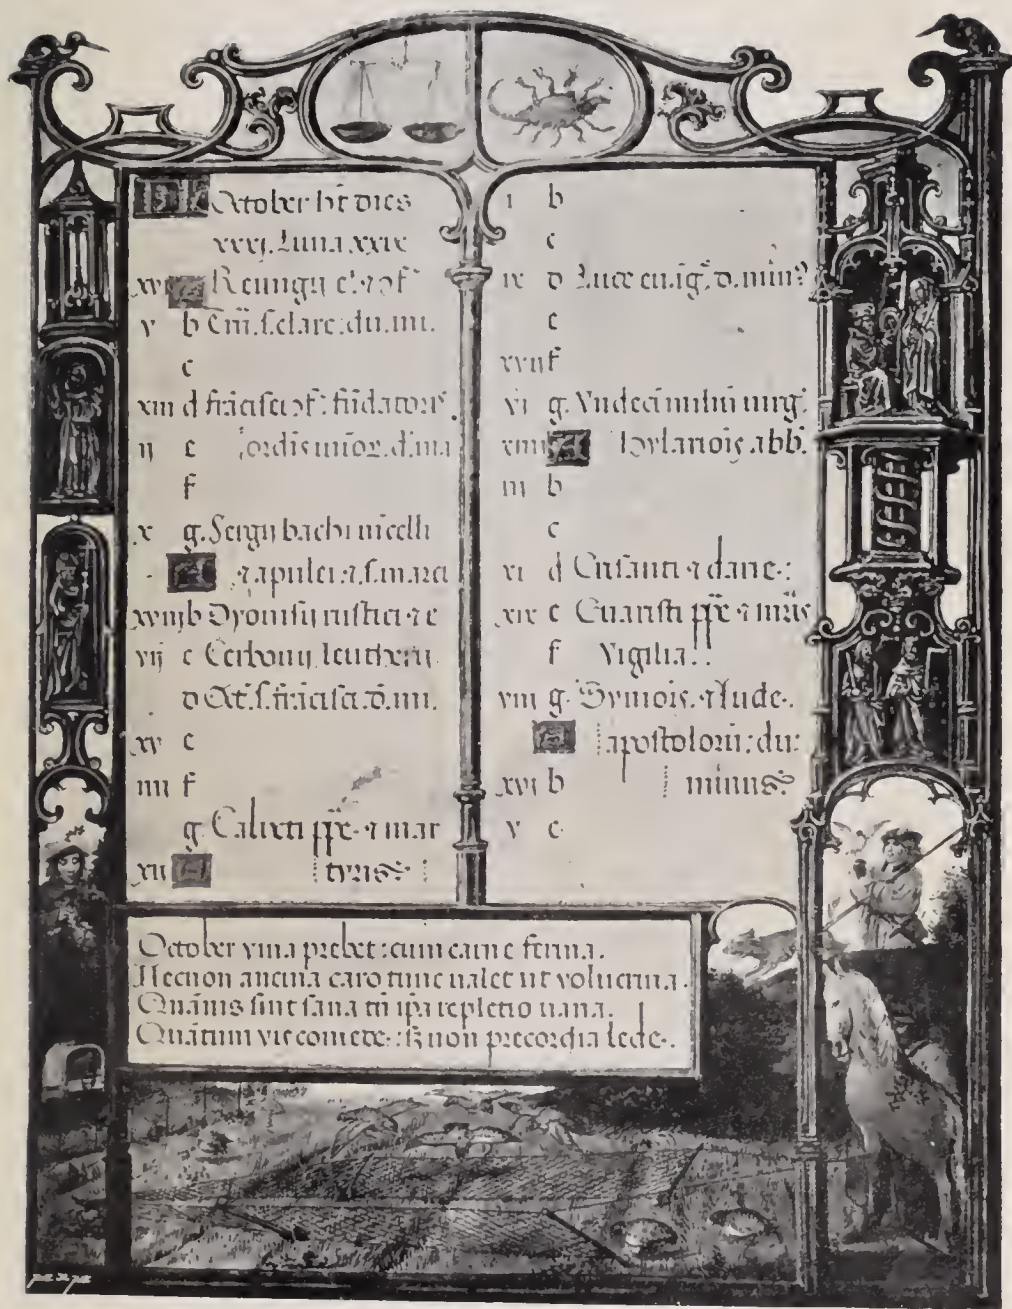 KL October ht dies
xxxj. Luna. xxix
A Remigij et
v b
c
xiii d francisci fundatoris
ij e ordis minor. d. ma
f
x g. Sergij bachi mcelli
A apulei s. marci
xviij b Dyonisij rustici
vij c Cerbonij
d Oct. s. francisci. d. mi.
xv e
iiij f
g. Calixti ppe mar
xij A tyris
i b
c
ix d Luce euāg. d. min
e
xvij f
vi g. Undeci miliū uirg.
xiiij A hylariōis abb.
iij b
c
xi d Crisanti darie.
xix e Euaristi ppe mris
f Vigilia.
viij g. Symois. Iude.
A apostolorū: du:
xvi b minus
v c.
October vina prebet: cum carne ferina.
Necnon ancina caro tunc ualet ut volucrina.
Quāuis sint sana tñ ipa repletio uana.
Quātum vis comede: non precordia lede.